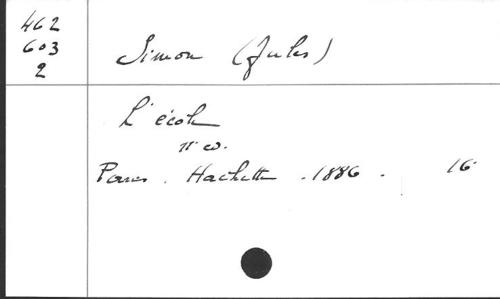 462
603
2
Simon (Jules)
L'école
11e éd.
Paris. Hachette. 1886. 16